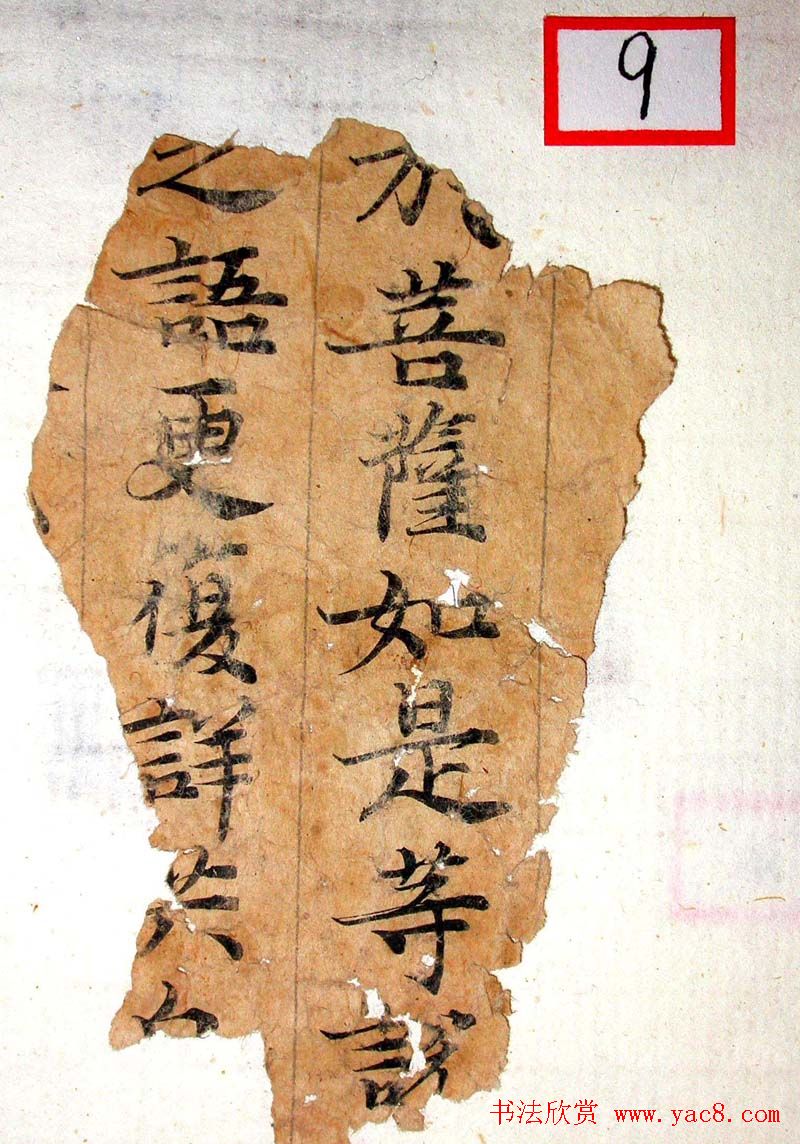 9
於菩薩如是等
之語更復詳共
书法欣赏 www.yac8.com